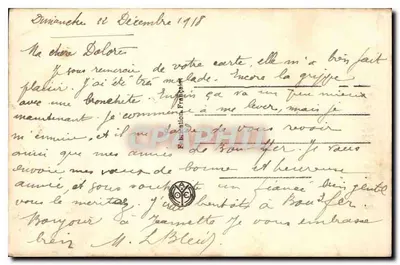 Dimanche 22 Décembre 1918
Ma chère Dolore
Je vous remercie de votre carte, elle m'a bien fait
plaisir. J'ai été très malade. Encore la grippe
avec une bronchite. Enfin ça va un peu mieux
maintenant. Je commence à me lever, mais je
m'ennuie et il me de vous revoir
ainsi que mes amies de Je vous
envoie mes vœux de bonne et heureuse
année et vous un fiancé bien gentil
vous le méritez. J'irai bientôt à
Bonjour à Jeannette Je vous embrasse
bien M. LeBleis
CPAPHIL